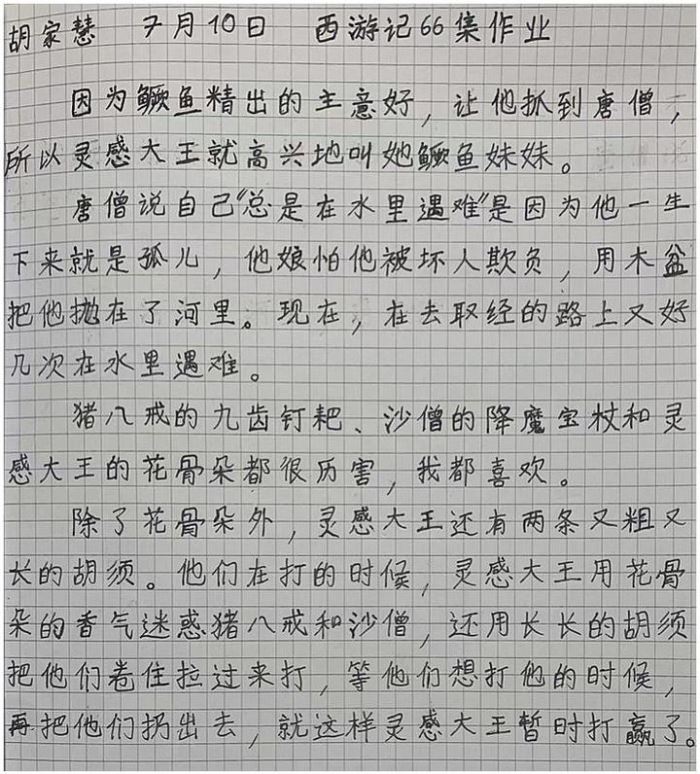 胡家慧 7月10日 西游记66集作业
因为鳜鱼精出的主意好，让他抓到唐僧，
所以灵感大王就高兴地叫她鳜鱼妹妹。
唐僧说自己“总是在水里遇难”是因为他一生
下来就是孤儿，他娘怕他被坏人欺负，用木盆
把他抛在了河里。现在，在去取经的路上又好
几次在水里遇难。
猪八戒的九齿钉耙、沙僧的降魔宝杖和灵
感大王的花骨朵都很厉害，我都喜欢。
除了花骨朵外，灵感大王还有两条又粗又
长的胡须。他们在打的时候，灵感大王用花骨
朵的香气迷惑猪八戒和沙僧，还用长长的胡须
把他们卷住拉过来打，等他们想打他的时候，
再把他们扔出去，就这样灵感大王暂时打赢了。